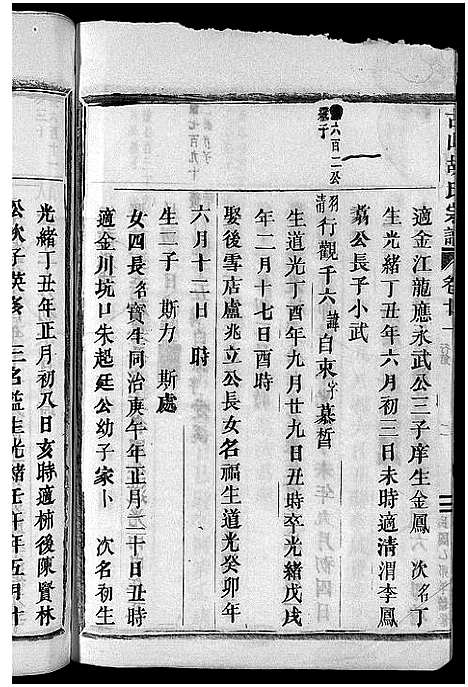 古山胡氏宗譜
卷廿一
適金江龍應永武公三子庠生金鳳 次名丁
生光緒丁丑年六月初三日未時適清渭李鳳
公長子小武
六百二公
行觀千六諱自東字慕晢
生道光丁酉年九月廿九日丑時卒光緒戊戌
年二月十七日酉時
娶後雪店盧兆立公長女名福生道光癸卯年
六月十二日 時
生二子 斯力 斯處
女四長名寶生同治庚午年正月二十日丑時
適金川坑口朱起廷公幼子家卜 次名初生
光緒丁丑年正月初八日亥時適柿後陳賢林
公次子英 三名 生光緒壬午年五月十